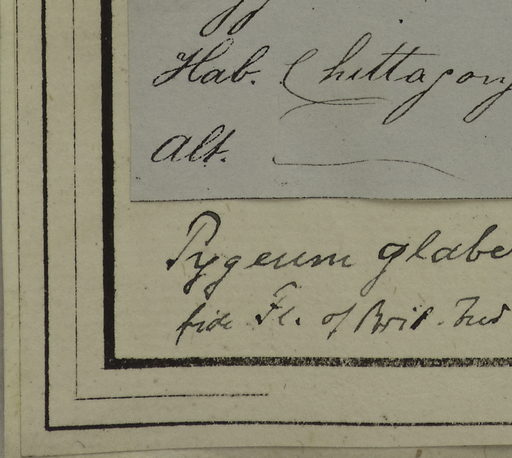 Hab. Chittagong
Alt.
Pygeum glabe
fide Fl. of Brit. Ind